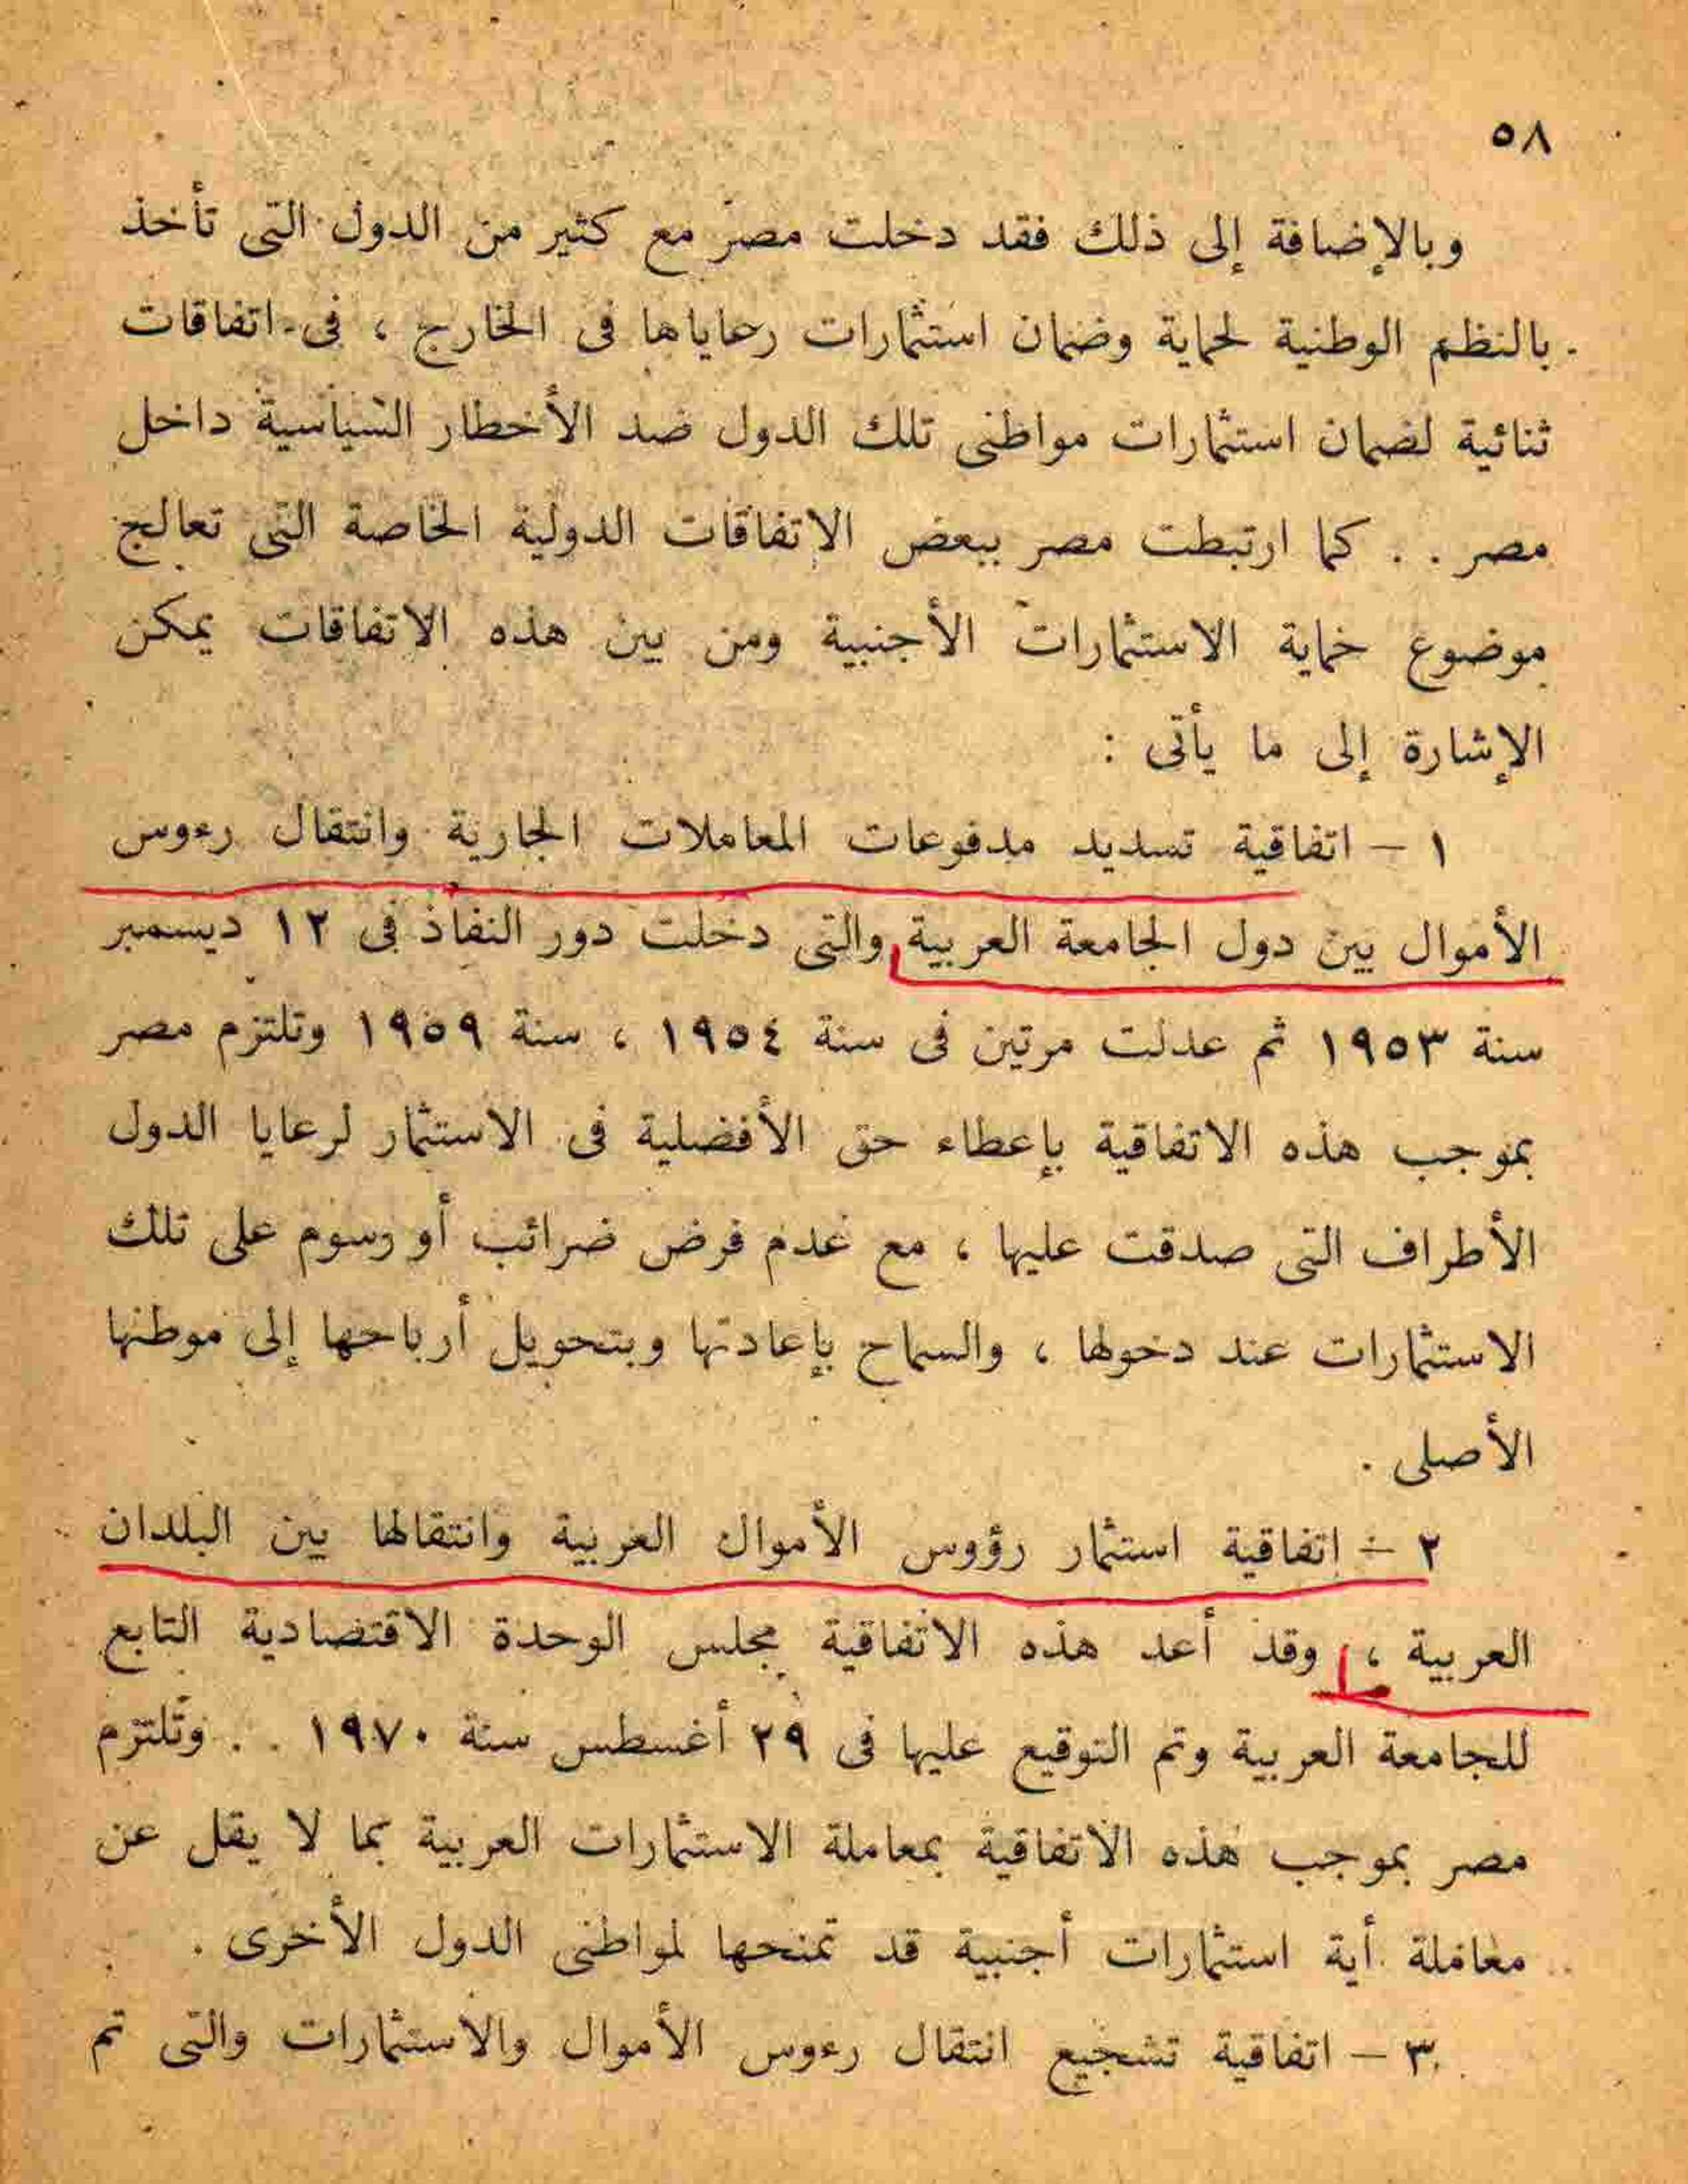 ٥٨
وبالإضافة إلى ذلك فقد دخلت مصر مع كثير من الدول التى تأخذ
بالنظم الوطنية لحماية وضمان استثمارات رعاياها فى الخارج ، فى اتفاقات
ثنائية لضمان استثمارات مواطنى تلك الدول ضد الأخطار السياسية داخل
مصر . . كما ارتبطت مصر ببعض الاتفاقات الدولية الخاصة التى تعالج
موضوع حماية الاستثمارات الأجنبية ومن بين هذه الاتفاقات يمكن
الإشارة إلى ما يأتى :
١ – اتفاقية تسديد مدفوعات المعاملات الجارية وانتقال رءوس
الأموال بين دول الجامعة العربية والتى دخلت دور النفاذ فى ١٢ ديسمبر
سنة ١٩٥٣ ثم عدلت مرتين فى سنة ١٩٥٤ ، سنة ١٩٥٩ وتلتزم مصر
بموجب هذه الاتفاقية بإعطاء حق الأفضلية فى الاستثمار لرعايا الدول
الأطراف التى صدقت عليها ، مع عدم فرض ضرائب أو رسوم على تلك
الاستثمارات عند دخولها ، والسماح بإعادتها وبتحويل أرباحها إلى موطنها
الأصلى .
٢ – اتفاقية استثمار رؤوس الأموال العربية وانتقالها بين البلدان
العربية ، وقد أعد هذه الاتفاقية مجلس الوحدة الاقتصادية التابع
للجامعة العربية وتم التوقيع عليها فى ٢٩ أغسطس سنة ١٩٧٠ . . وتلتزم
مصر بموجب هذه الاتفاقية بمعاملة الاستثمارات العربية بما لا يقل عن
معاملة أية استثمارات أجنبية قد تمنحها لمواطنى الدول الأخرى .
٣ – اتفاقية تشجيع انتقال رءوس الأموال والاستثمارات والتى تم